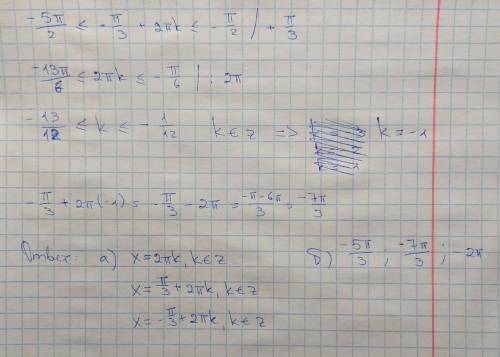 -5π/2 ≤ -π/3 + 2πk ≤ -π/2 | + π/3
-13π/6 ≤ 2πk ≤ -π/6 | : 2π
-13/12 ≤ k ≤ -1/12 k ∈ z => k = -1
-π/3 + 2π(-1) = -π/3 - 2π = -π-6π/3 = -7π/3
Ответ: а) x = 2πk, k ∈ z б) -5π/3 ; -7π/3 ; -2π
x = π/3 + 2πk, k ∈ z
x = -π/3 + 2πk, k ∈ z